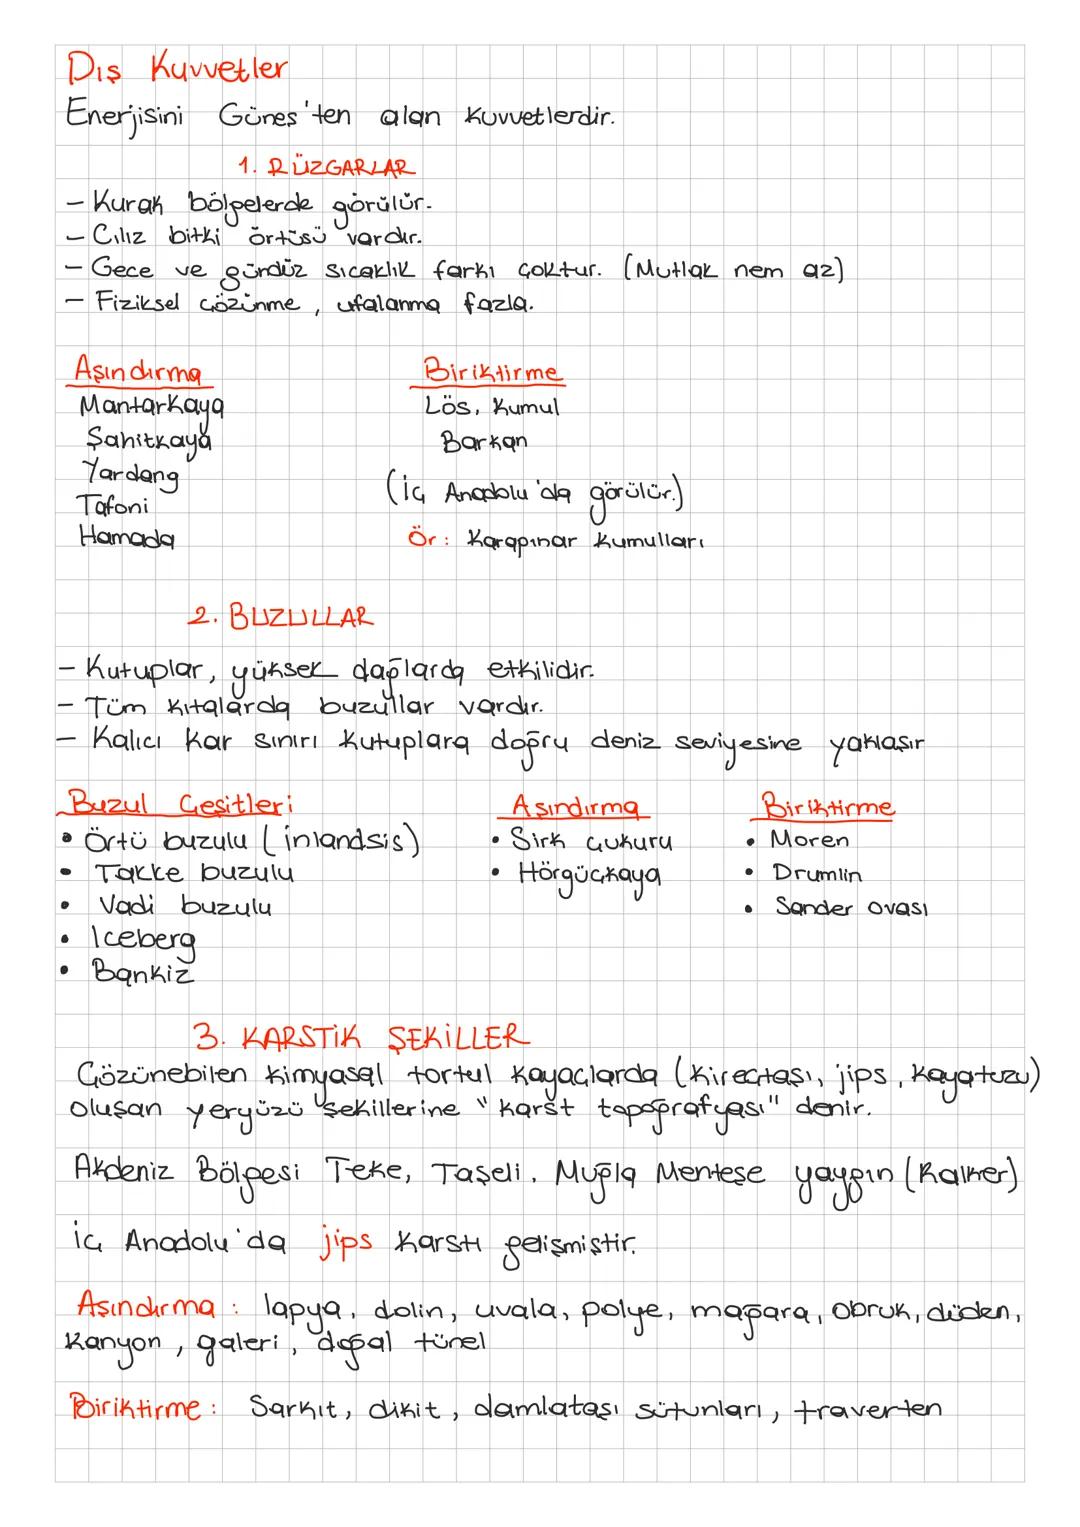 Dış Kuvvetler
Enerjisini Güneş'ten alan kuvvetlerdir.
1. RÜZGARLAR
- Kurak bölgelerde görülür.
- Cılız bitki örtüsü vardır.
- Gece ve gündüz sıcaklık farkı çoktur. (Mutlak nem az)
- Fiziksel çözünme, ufalanma fazla.
Aşındırma
Mantarkaya
Şahitkaya
Yardang
Tafoni
Hamada
Biriktirme
Lös, Kumul
Barkan
(İç Anadolu'da görülür.)
Ör: Karapınar Kumulları
2. BUZULLAR
- Kutuplar, yüksek dağlarda etkilidir.
- Tüm kıtalarda buzullar vardır.
- Kalıcı Kar sınırı kutuplara doğru deniz seviyesine yaklaşır
Buzul Çeşitleri
• Örtü buzulu (inlandsis)
• Takke buzulu
• Vadi buzulu
• Iceberg
• Bankiz
Aşındırma
• Sirk çukuru
• Hörgüçkaya
Biriktirme
• Moren
• Drumlin
• Sander ovası
3. KARSTİK ŞEKİLLER
Çözünebilen kimyasal tortul kayaçlarda (kireçtaşı, jips, kayatuzu)
oluşan yeryüzü şekillerine "karst topoğrafyası" denir.
Akdeniz Bölgesi Teke, Taşeli, Muğla Menteşe yaygın (Kalker)
İç Anadolu'da jips karstı gelişmiştir.
Aşındırma : lapya, dolin, uvala, polye, mağara, obruk, düden,
kanyon, galeri, doğal tünel
Biriktirme : Sarkıt, dikit, damlataşı sütunları, traverten